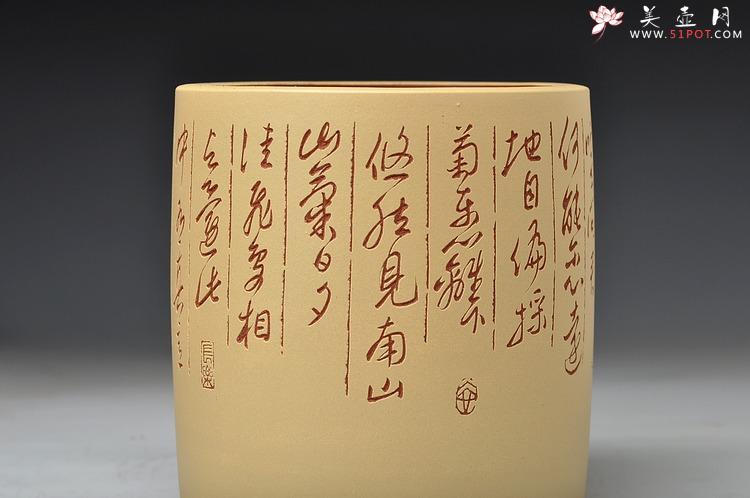 美壶网
WWW.51POT.COM
何能尔心遠
地自偏採
菊东籬下
悠然見南山
山氣日夕
佳飛鸟相
与還此
中